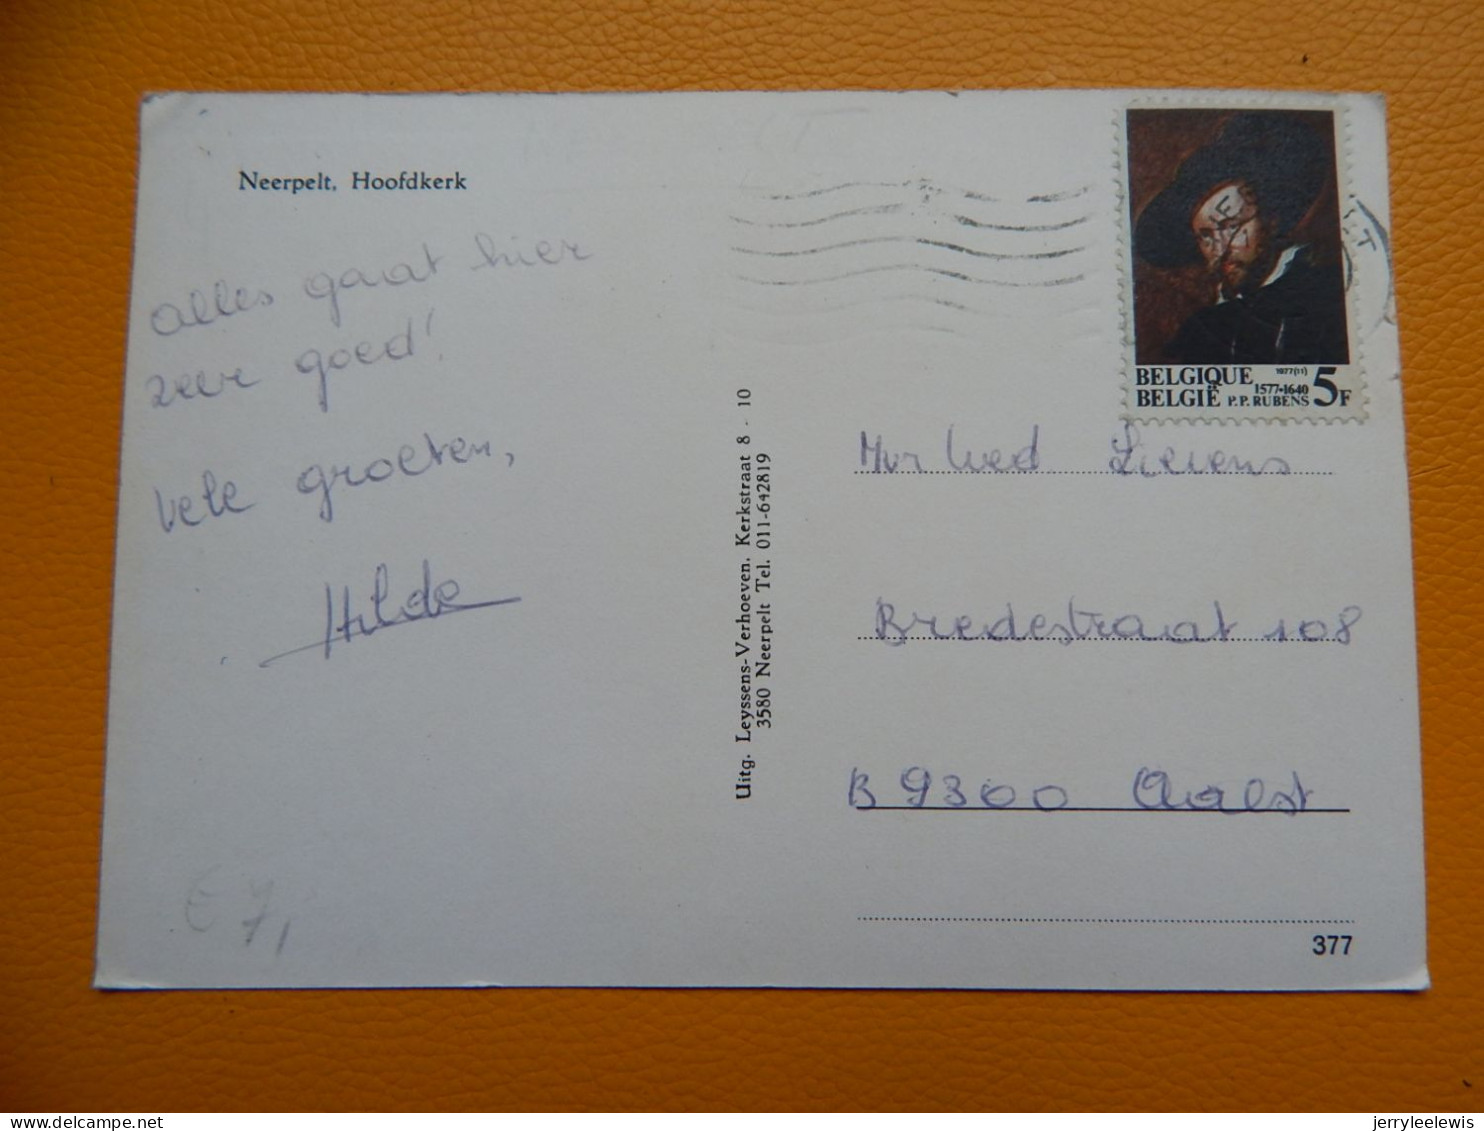 Neerpelt, Hoofdkerk
alles gaat hier
zeer goed!
vele groeten,
Hilde
€ 7,
Uitg. Leyssens-Verhoeven, Kerkstraat 8 - 10
3580 Neerpelt Tel. 011-642819
1977(11)
BELGIQUE
BELGIË
1577•1640
P.P. RUBENS
5F
Mvr Wed. Lievens
Bredestraat 108
B 9300 Aalst
377
jerryleelewis